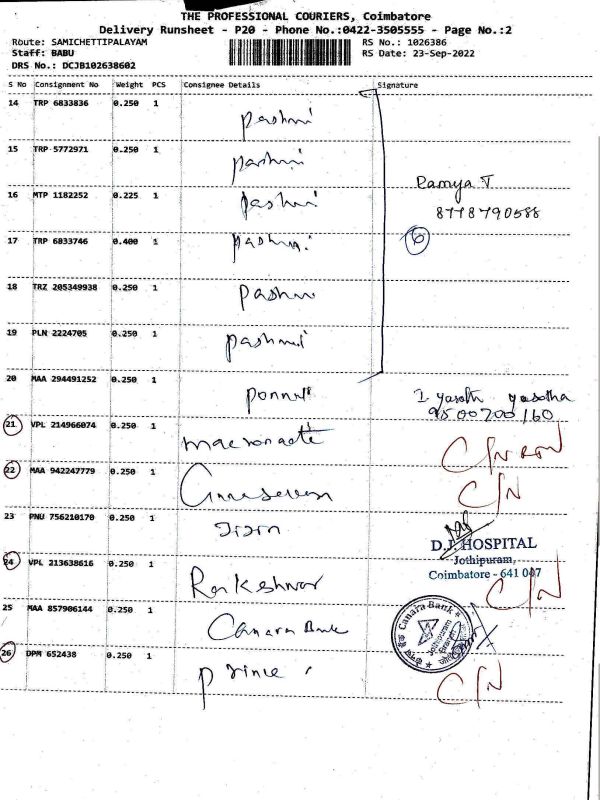 THE PROFESSIONAL COURIERS, Coimbatore
Delivery Runsheet - P20 - Phone No.:0422-3505555 - Page No.:2
Route: SAMICHETTIPALAYAM RS No.: 1026386
Staff: BABU RS Date: 23-Sep-2022
DRS No.: DCJB102638602
S No Consignment No Weight PCS Consignee Details Signature
14 TRP 6833836 0.250 1 pashmi
15 TRP 5772971 0.250 1 pashmi
Ramya T
16 MTP 1182252 0.225 1 pashmi
8778790588
17 TRP 6833746 0.400 1 pashmi 6
18 TRZ 205349938 0.250 1 pashmi
19 PLN 2224705 0.250 1 pashmi
20 MAA 294491252 0.250 1 yasotha
9500200160
21 VPL 214966074 0.250 1 C/N
22 MAA 942247779 0.250 1 C/N
23 PNU 756210170 0.250 1
D.J. HOSPITAL
Jothipuram,
Coimbatore - 641 047
24 VPL 213638616 0.250 1 Rakeshwar C/N
25 MAA 857906144 0.250 1 Canara Bank
Canara Bank
Jothipuram
Branch
26 DPM 652438 0.250 1 prince C/N